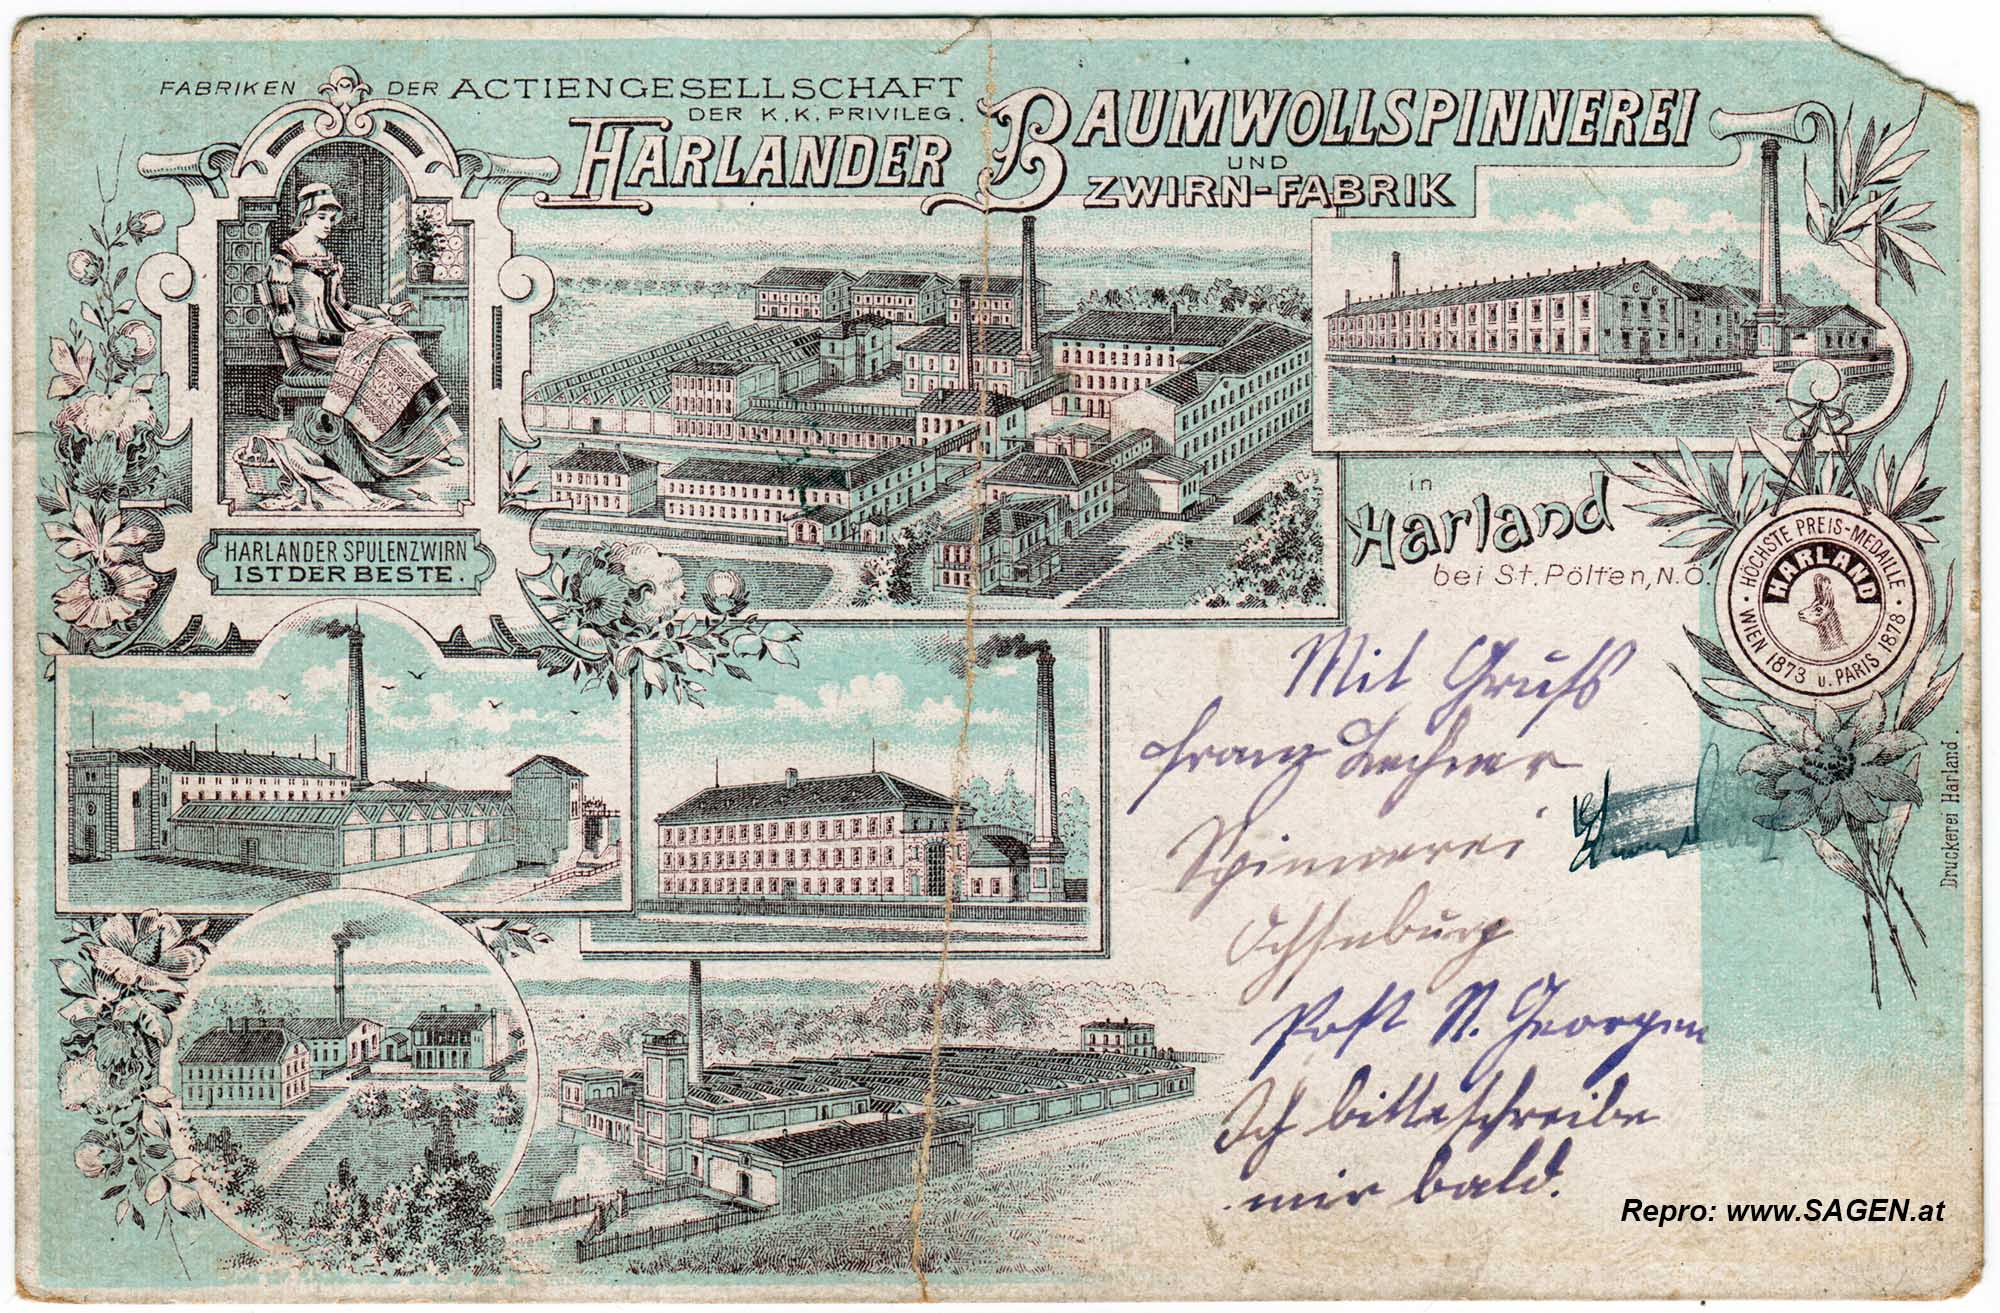 FABRIKEN DER ACTIENGESELLSCHAFT
DER K. K. PRIVILEG.
HARLANDER BAUMWOLLSPINNEREI
UND
ZWIRN-FABRIK
HARLANDER SPULENZWIRN
IST DER BESTE.
in
Harland
bei St. Pölten, N.Ö.
HÖCHSTE PREIS-MEDAILLE
WIEN 1873 u. PARIS 1878
HARLAND
Mit Gruß
Franz Lechner
Spinnerei
Ochsenburg
Post St. Georgen
Ich bitte schreibe
mir bald.
Druckerei Harland.
Repro: www.SAGEN.at